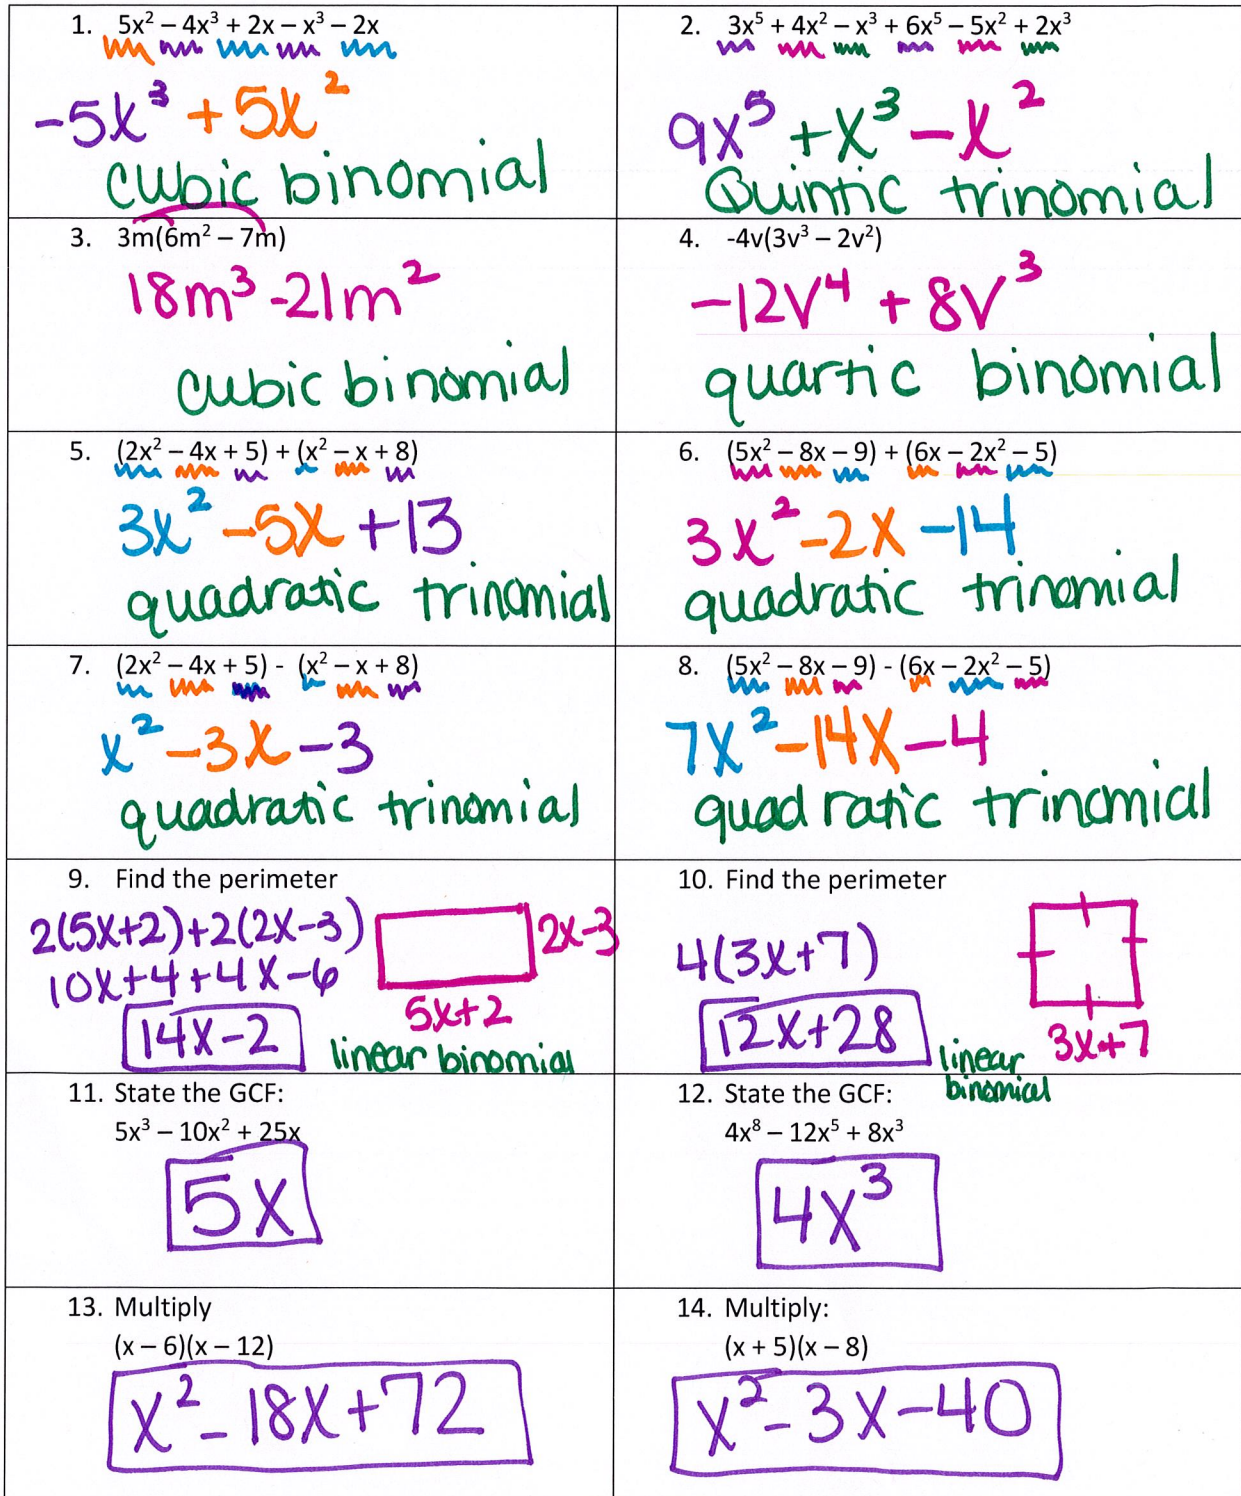 1. 5x² – 4x³ + 2x – x³ – 2x
-5x³ + 5x²
cubic binomial
2. 3x⁵ + 4x² – x³ + 6x⁵ – 5x² + 2x³
9x⁵ + x³ – x²
Quintic trinomial
3. 3m(6m² – 7m)
18m³ -21m²
cubic binomial
4. -4v(3v³ – 2v²)
-12v⁴ + 8v³
quartic binomial
5. (2x² – 4x + 5) + (x² – x + 8)
3x² -5x +13
quadratic trinomial
6. (5x² – 8x – 9) + (6x – 2x² – 5)
3x² -2x -14
quadratic trinomial
7. (2x² – 4x + 5) - (x² – x + 8)
x² -3x -3
quadratic trinomial
8. (5x² – 8x – 9) - (6x – 2x² – 5)
7x² -14x -4
quadratic trinomial
9. Find the perimeter
2(5x+2)+2(2x-3)
2x-3
10x+4+4x-6
5x+2
14x-2
linear binomial
10. Find the perimeter
4(3x+7)
12x+28
3x+7
linear
binomial
11. State the GCF:
5x³ – 10x² + 25x
5x
12. State the GCF:
4x⁸ – 12x⁵ + 8x³
4x³
13. Multiply
(x – 6)(x – 12)
x² - 18x + 72
14. Multiply:
(x + 5)(x – 8)
x² - 3x - 40